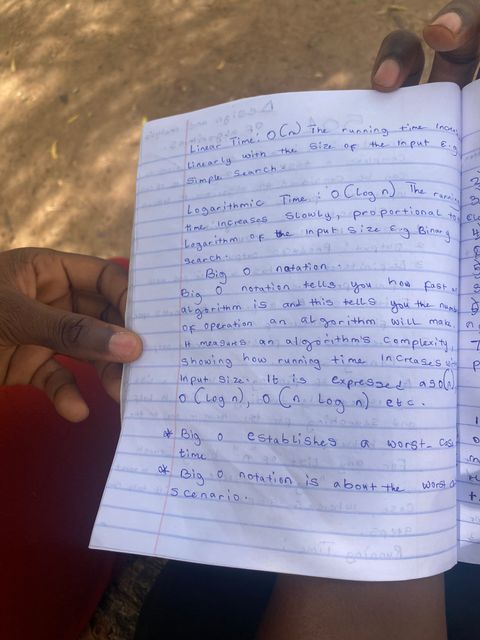 Linear Time: O(n) The running time Incre
linearly with the size of the Input E.g
Simple Search.
Logarithmic Time: O(Log n) The runn
time increases slowly, proportional to
Logarithm of the Input size E.g Binary
search.
Big O notation.
Big O notation tells you how fast a
algorithm is and this tells you the numb
of operation an algorithm will make.
It measures an algorithm's complexity,
showing how running time Increases
Input size. It is expressed as O(n),
O(Log n), O(n Log n) etc.
* Big O establishes a worst-case
time
* Big O notation is about the worst
scenario.